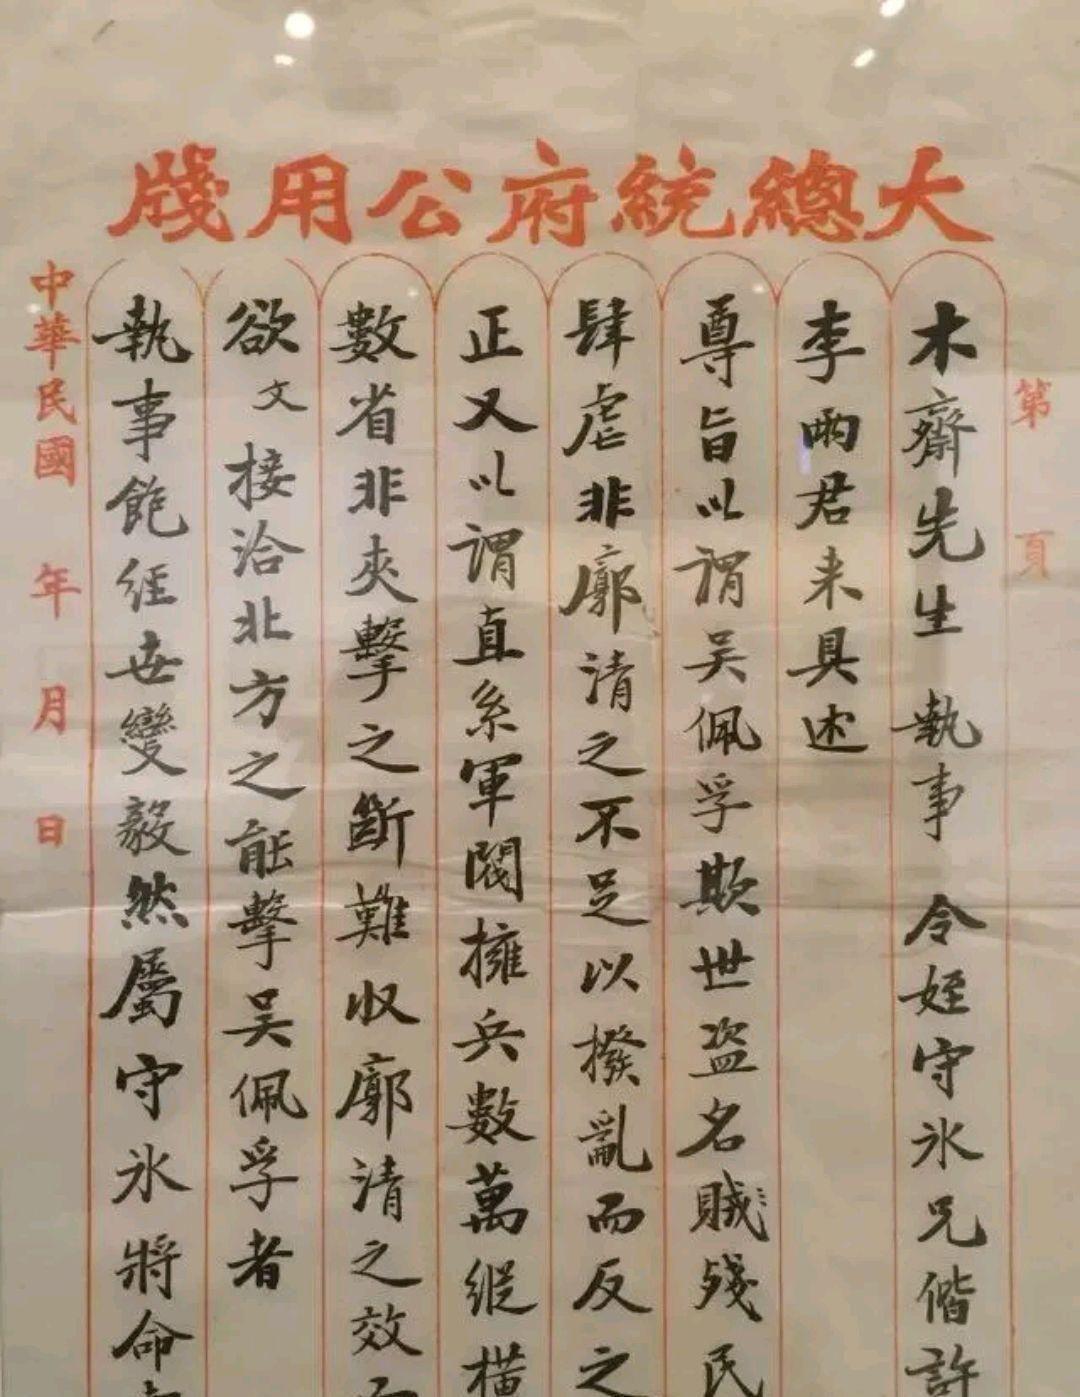 大總統府公用牋
第　頁
木齋先生 執事 令姪守冰兄偕許
李兩君来具述
尊旨以謂吴佩孚欺世盗名賊殘民
肆虐非廓清之不足以撥亂而反之
正又以謂直系軍閥擁兵數萬縱横
數省非夾擊之斷難收廓清之效而
欲文接洽北方之能擊吴佩孚者
執事飽經世變毅然屬守冰將命
中華民國　年　月　日